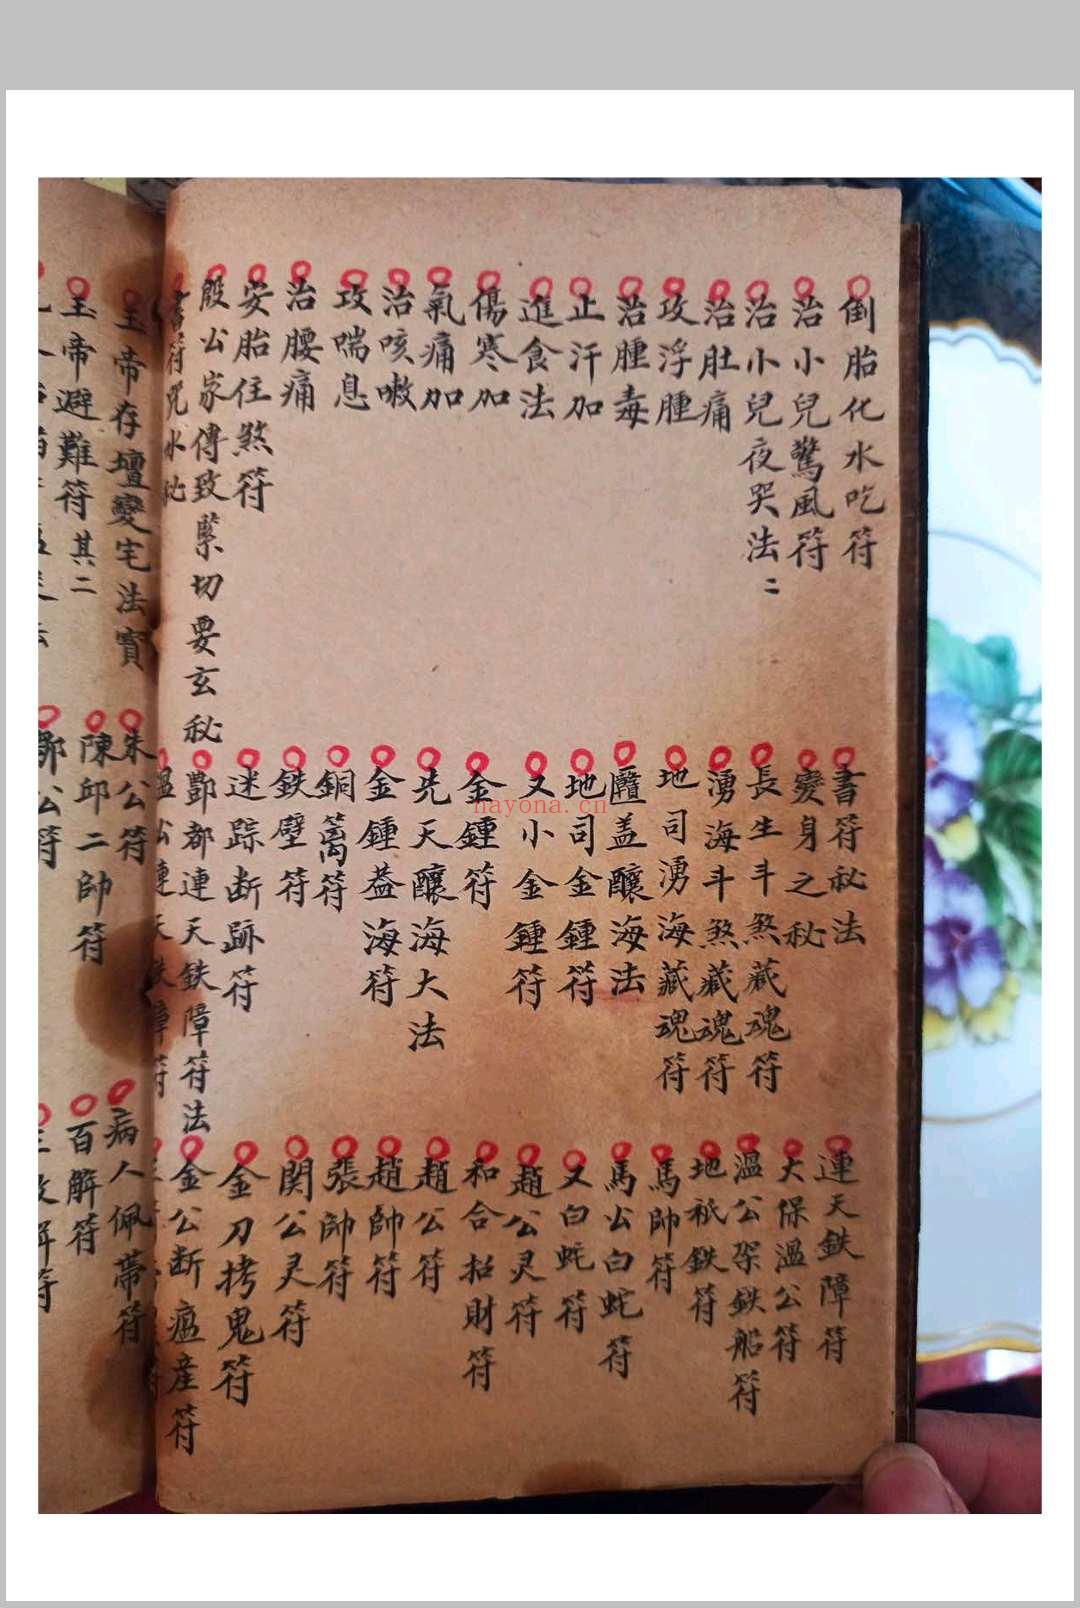 倒胎化水吃符
治小兒驚風符
治小兒夜哭法二
治肚痛
攻浮腫
治腫毒
止汗加
進食法
傷寒加
氣痛加
治咳嗽
攻喘息
治腰痛
安胎住煞符
殷公家傳致緊切要玄秘
書符咒水
書符秘法
變身之秘
長生斗煞藏魂符
湧海斗煞藏魂符
地司湧海藏魂符
蓋釀海法
地司金鍾符
又小金鍾符
金鍾符
先天釀海大法
金鍾葢海符
銅篱符
鉄壁符
迷踪断跡符
酆都連天鉄障符法
連天鉄障符
大保溫公符
溫公架鉄船符
地祇鉄符
馬帥符
馬公白蛇符
又白蛇符
趙公灵符
和合招財符
趙公符
趙帥符
張帥符
関公灵符
金刀拷鬼符
金公断瘟産符
玉帝存壇變宅法寳
玉帝避難符其二
朱公符
陳邱二帥符
公符
病人佩帶符
百解符
nayona.cn